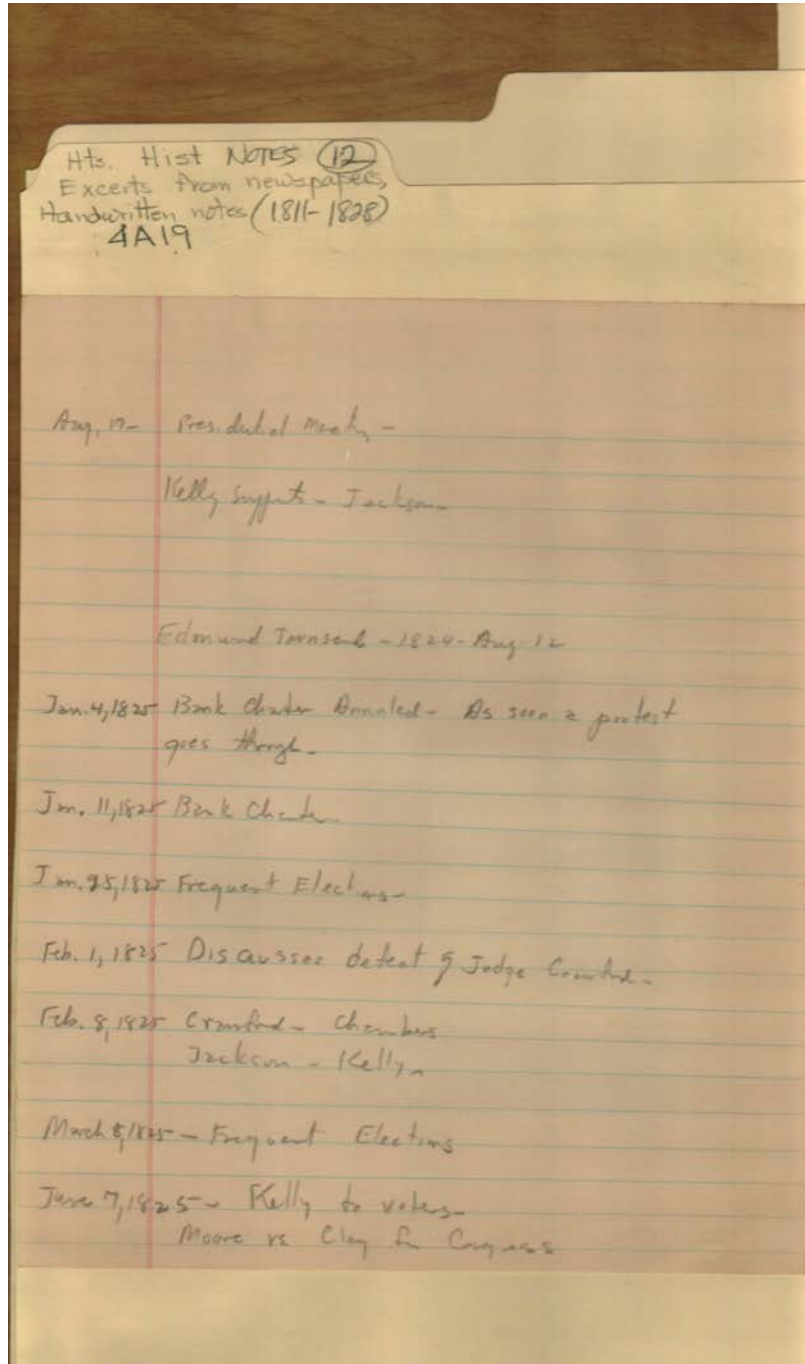 Hts. Hist NOTES (12)
Excerts from newspapers,
Handwritten notes (1811-1828)
4A19
Aug. 17- Presidential Meeting -
Kelly Supports - Jackson-
Edmund Townsend - 1824 - Aug 12
Jan. 4, 1825 Bank Charter Annuled - As soon a protest
goes through-
Jan. 11, 1825 Bank Charter
Jan. 25, 1825 Frequent Elections-
Feb. 1, 1825 Discusses defeat of Judge Crawford-
Feb. 8, 1825 Crawford - Chambers
Jackson - Kelly-
March 8, 1825 - Frequent Elections
June 7, 1825 - Kelly to voters-
Moore vs Clay for Congress